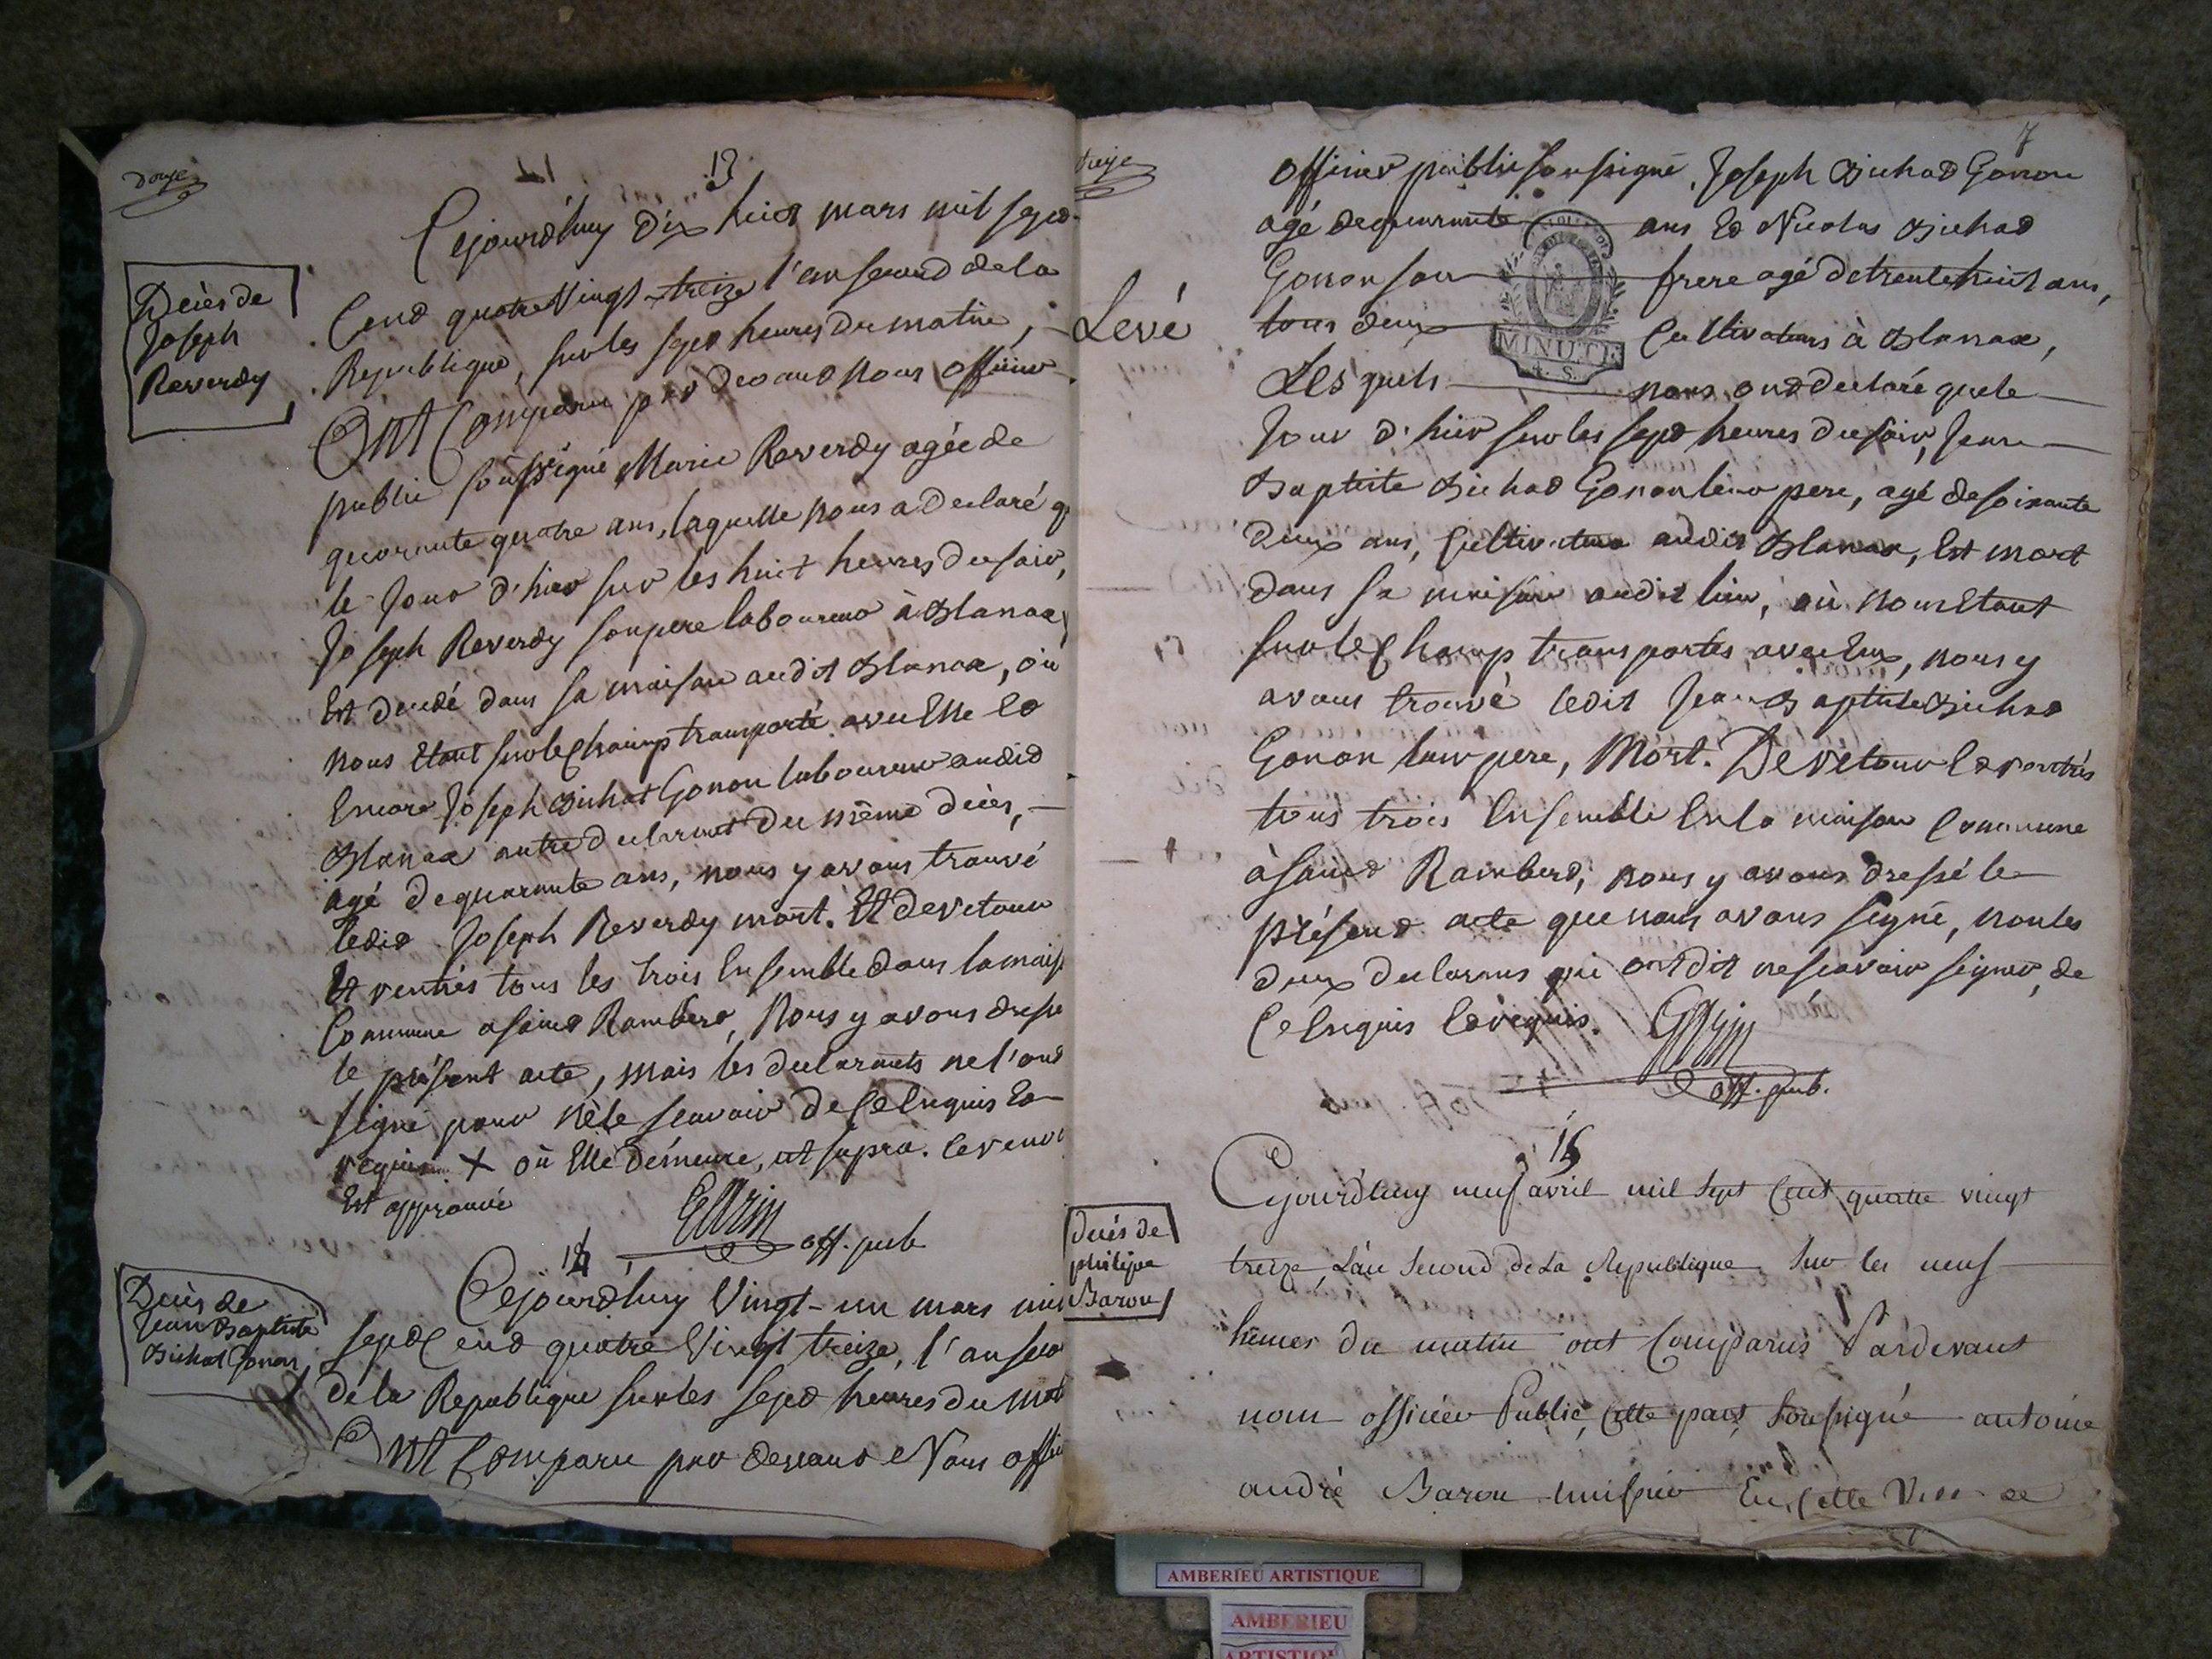 douze
13
Cejourd'huy dix huit mars mil sept
Cend quatre Vingt treize l'an second de la
Republique, sur les sept heures du matin,
Ont Comparu par devant nous officier
public soussigné Marie Reverdy agée de
quarante quatre ans, laquelle nous a declaré q
le jour d'hier sur les huit heures du soir,
Joseph Reverdy son pere laboureur à Blanaz
Est decedé dans sa maison audit Blanaz, où
nous Etant sur le Champ transporté avec Elle Et
Encore Joseph Bichat Gonon laboureur audit
Blanaz autre declarant du même décès,
agé de quarante ans, nous y avons trouvé
ledit Joseph Reverdy mort. Et de retour
Et rentrés tous les trois Ensemble dans la mais
Commune a saint Rambert, Nous y avons dressé
le présent acte, mais les declarants ne l'ont
signé pour ne le scavoir de Ce Enquis Et
requis + où Elle démeure, ut supra. le renvoi
Est approuvé
Garin off. pub
Décès de
Joseph
Reverdy
14
Cejourd'huy Vingt-un mars mil
sept Cend quatre Vingt treize, l'an seco
de la Republique sur les sept heures du mat
Ont Comparu par devant Nous offici
Décès de
Jean Baptiste
Bichat Gonon
treize
7
officier public soussigné, Joseph Bichat Gonon
agé de quarante ans Et Nicolas Bichat
Gonon son frere agé de trente huit ans,
tous deux Cultivateurs à Blanaz,
Lesquels nous ont declaré que le
Jour d'hier sur les sept heures du soir, Jean
Baptiste Bichat Gonon leur pere, agé de soixante
deux ans, Cultivateur audit Blanaz, Est mort
dans sa maison audit lieu, où nous Etant
sur le Champ transportés avec Eux, nous y
avons trouvé ledit Jean Baptiste Bichat
Gonon leur pere, Mort. De retour Et rentrés
tous trois Ensemble En la maison Commune
à saint Rambert, nous y avons dressé le
présent acte que nous avons signé, non les
deux declarans qui ont dit ne scavoir signer, de
Ce Enquis Et requis. Garin
off. pub.
Levé
MINUTE
4. S.
15
Cejourd'huy neuf avril mil sept Cent quatre vingt
treize, L'an Second de La Republique Sur les neuf
heures du matin ont Comparus Pardevant
nous officier Public, Cette part Soussigné antoine
andré Barou En Cette Ville de
Décès de
philipe
Barou
AMBERIEU ARTISTIQUE
AMBERIEU
ARTISTIQUE